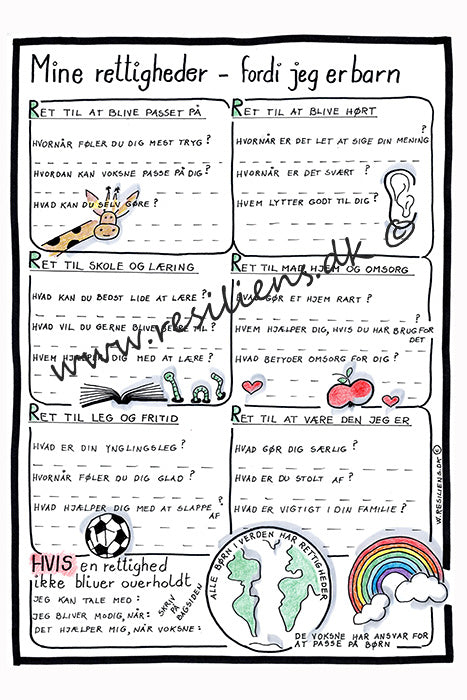 Mine rettigheder - fordi jeg er barn
RET TIL AT BLIVE PASSET PÅ
HVORNÅR FØLER DU DIG MEST TRYG?
HVORDAN KAN VOKSNE PASSE PÅ DIG?
HVAD KAN DU SELV GØRE?
RET TIL AT BLIVE HØRT
HVORNÅR ER DET LET AT SIGE DIN MENING?
HVORNÅR ER DET SVÆRT?
HVEM LYTTER GODT TIL DIG?
RET TIL SKOLE OG LÆRING
HVAD KAN DU BEDST LIDE AT LÆRE?
HVAD VIL DU GERNE BLIVE BEDRE TIL?
HVEM HJÆLPER DIG MED AT LÆRE?
RET TIL MAD HJEM OG OMSORG
HVAD GØR ET HJEM RART?
HVEM HJÆLPER DIG, HVIS DU HAR BRUG FOR
DET?
HVAD BETYDER OMSORG FOR DIG?
RET TIL LEG OG FRITID
HVAD ER DIN YNGLINGSLEG?
HVORNÅR FØLER DU DIG GLAD?
HVAD HJÆLPER DIG MED AT SLAPPE
AF?
RET TIL AT VÆRE DEN JEG ER
HVAD GØR DIG SÆRLIG?
HVAD ER DU STOLT AF?
HVAD ER VIGTIGT I DIN FAMILIE?
HVIS en rettighed
ikke bliver overholdt
JEG KAN TALE MED:
JEG BLIVER MODIG, NÅR:
DET HJÆLPER MIG, NÅR VOKSNE:
SKRIV
PÅ
BAGSIDEN
ALLE BØRN I VERDEN HAR RETTIGHEDER
DE VOKSNE HAR ANSVAR FOR
AT PASSE PÅ BØRN
W.RESILIENS.DK ©
www.resiliens.dk ©